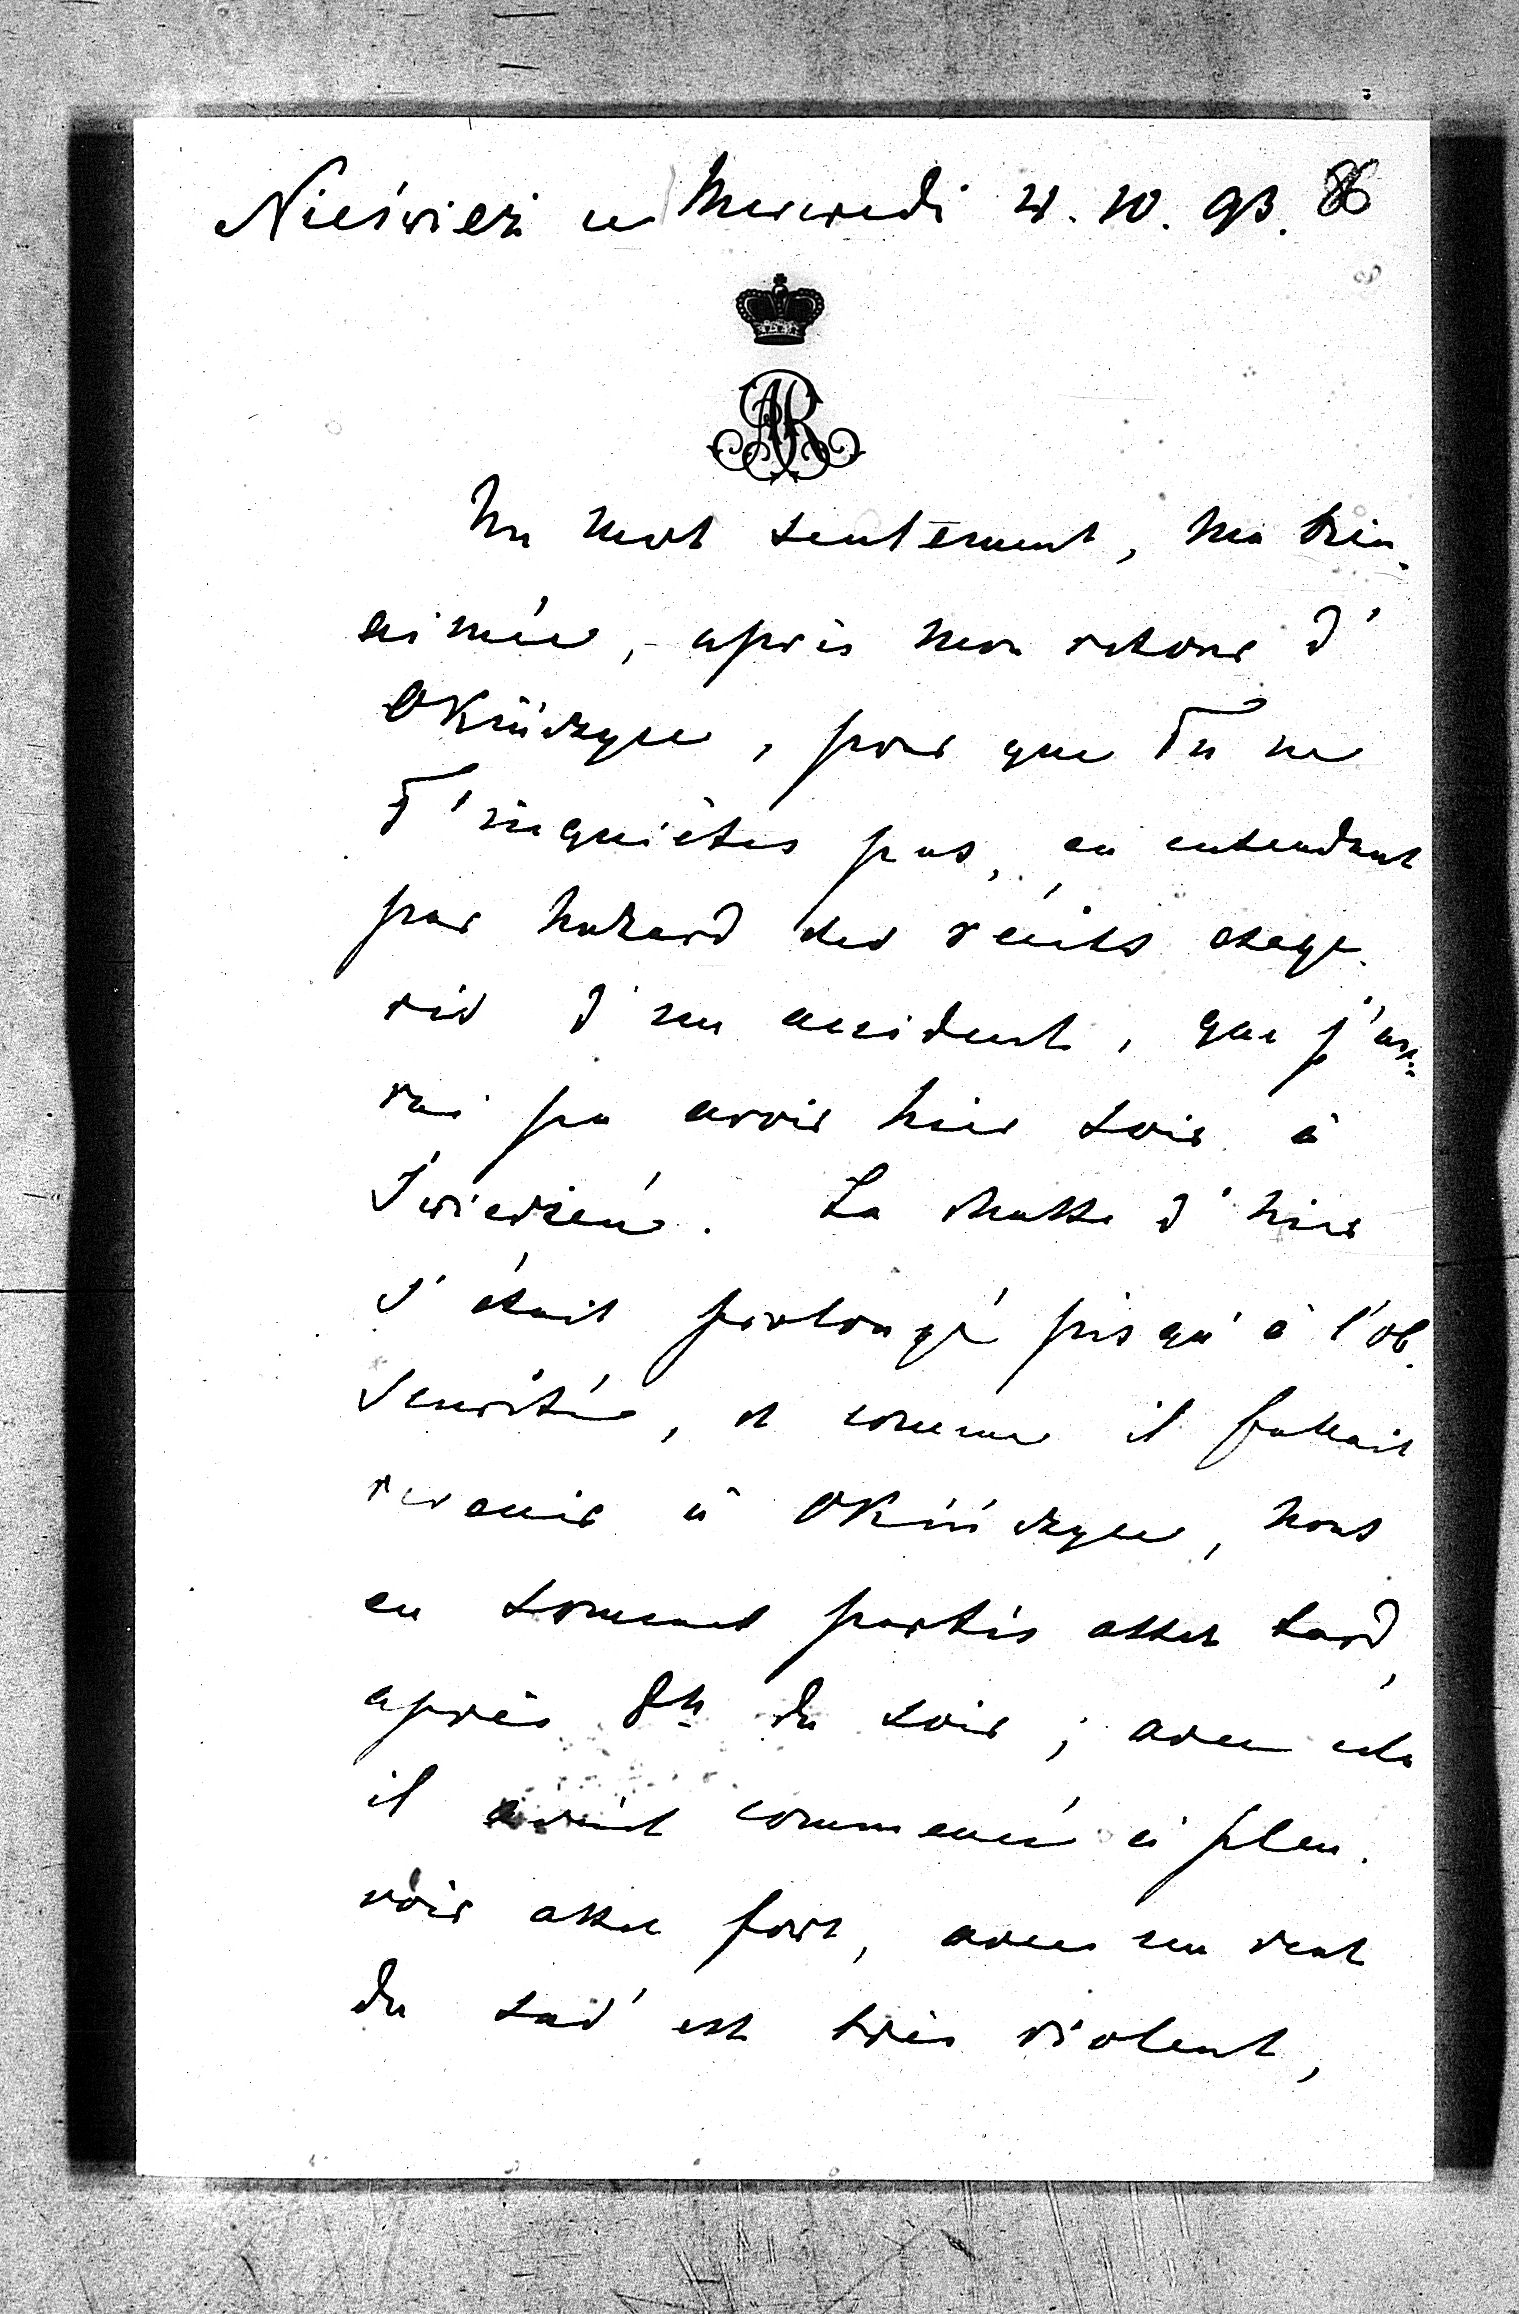 Nieśwież ce Mercredi 4. 10. 93. 86
AR
Un mot seulement, ma bien-
aimée, - après mon retour d'
Okińczyce, pour que Tu ne
T'inquiètes pas, en entendant
par hazard des récits exagé-
rés d'un accident, que j'au-
rai pu avoir hier soir à
La chasse d'hier
s'était prolongé jusqu'à l'ob-
scuritée, et comme il fallait
revenir à Okińczyce, nous
en sommes partis assez tard,
après 8h du soir; avec cela
il avait commencé à pleu-
voir assez fort, avec un vent
du sud est très violent,